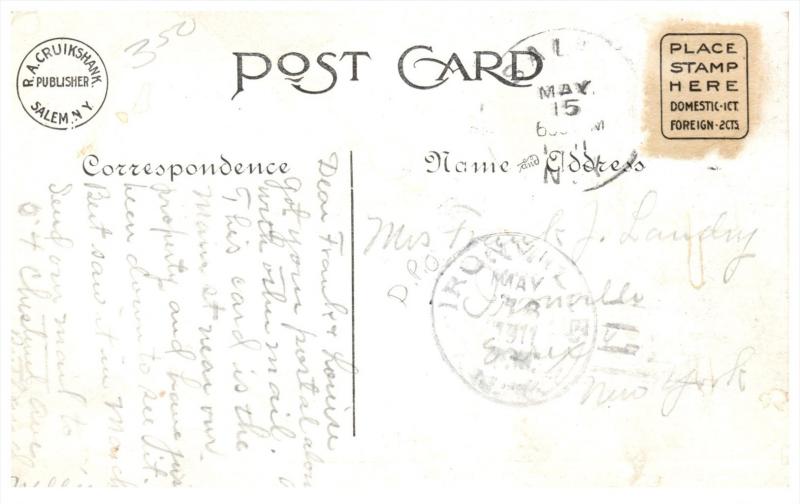 R.A. CRUIKSHANK.
PUBLISHER
SALEM, N.Y.
350
POST CARD
MAY
15
N.Y.
PLACE
STAMP
HERE
DOMESTIC-1CT.
FOREIGN-2CTS.
Correspondence
Name and Address
Dear Frank & Louise
got your postal
with other mail.
This card is the
Main st near our
property and have
been down to see it.
But saw it in March
Send our mail to
Chestnut Ave
Mrs Frank J. Landry
Ironville
Essex
New York
D.P.O
IRONVILLE
MAY
1911